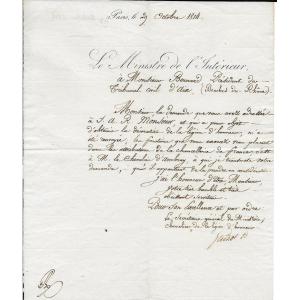 Paris, le 29 Octobre 1814
Le Ministre de l'Intérieur,
à Monsieur Bernard, Président du
Tribunal civil d'Aix, (Bouches du Rhône)
Monsieur, la demande que vous avez adressée
à S. A. R. Monsieur, et qui a pour objet
d'obtenir la décoration de la légion d'honneur, m'a été
envoyée, les fonctions que vous exercez vous placent
dans les attributions de la chancellerie de france
à M. le Chancelier d'Ambray, à qui je transmets votre
demande, qui
j'ai l'honneur d'être, Monsieur,
votre très humble et très
obéissant serviteur
Pour Son Excellence et par ordre
Le Secrétaire général du Ministère,
chevalier de la légion d'honneur